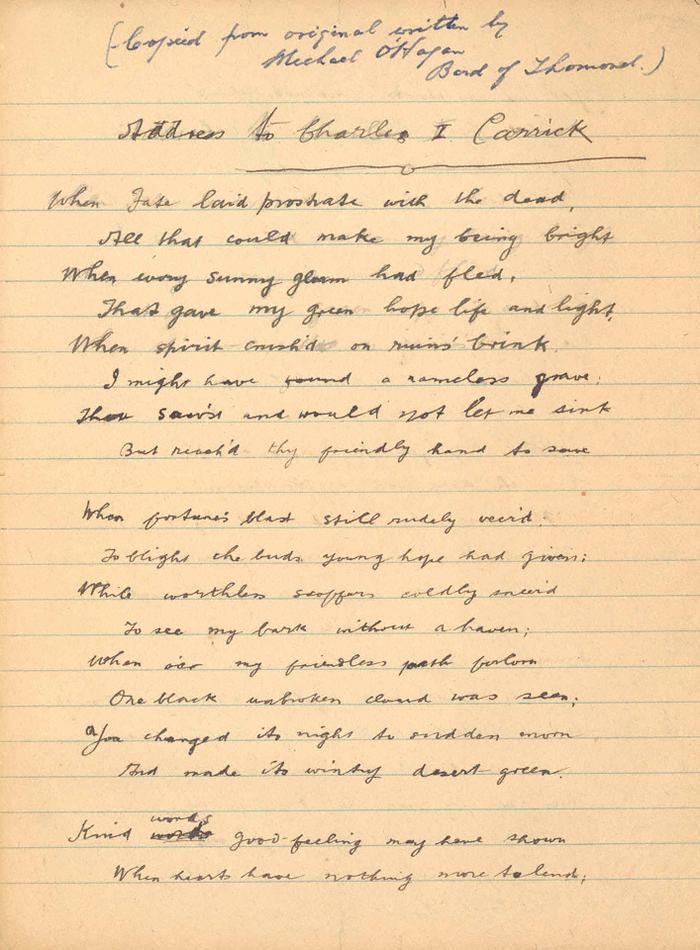 (Copied from original written by
Michael O'Hagan
Bard of Thomond.)
Address to Charles I Carrick
When Fate laid prostrate with the dead,
All that could make my being bright
When every sunny gleam had fled,
That gave my green hope life and light,
When spirit crush'd on ruins' brink
I might have found a nameless grave;
Thou saw'st and would not let me sink
But reach'd thy friendly hand to save
When fortune's blast still rudely veer'd
To blight the buds young hope had given;
While worthless scoffers coldly sneer'd
To see my bark without a haven;
When o'er my friendless path forlorn
One black unbroken cloud was seen;
You changed its night to sudden morn
And made its wintry desert green.
words
Kind good feeling may have shown
When hearts have nothing more to lend;